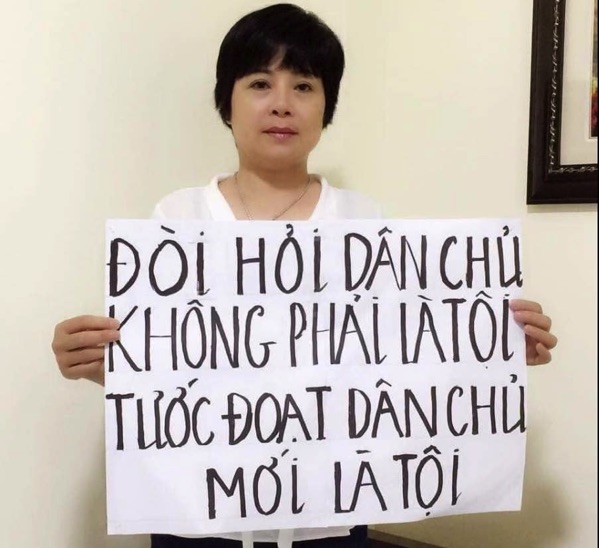 ĐÒI HỎI DÂN CHỦ
KHÔNG PHẢI LÀ TỘI
TƯỚC ĐOẠT DÂN CHỦ
MỚI LÀ TỘI